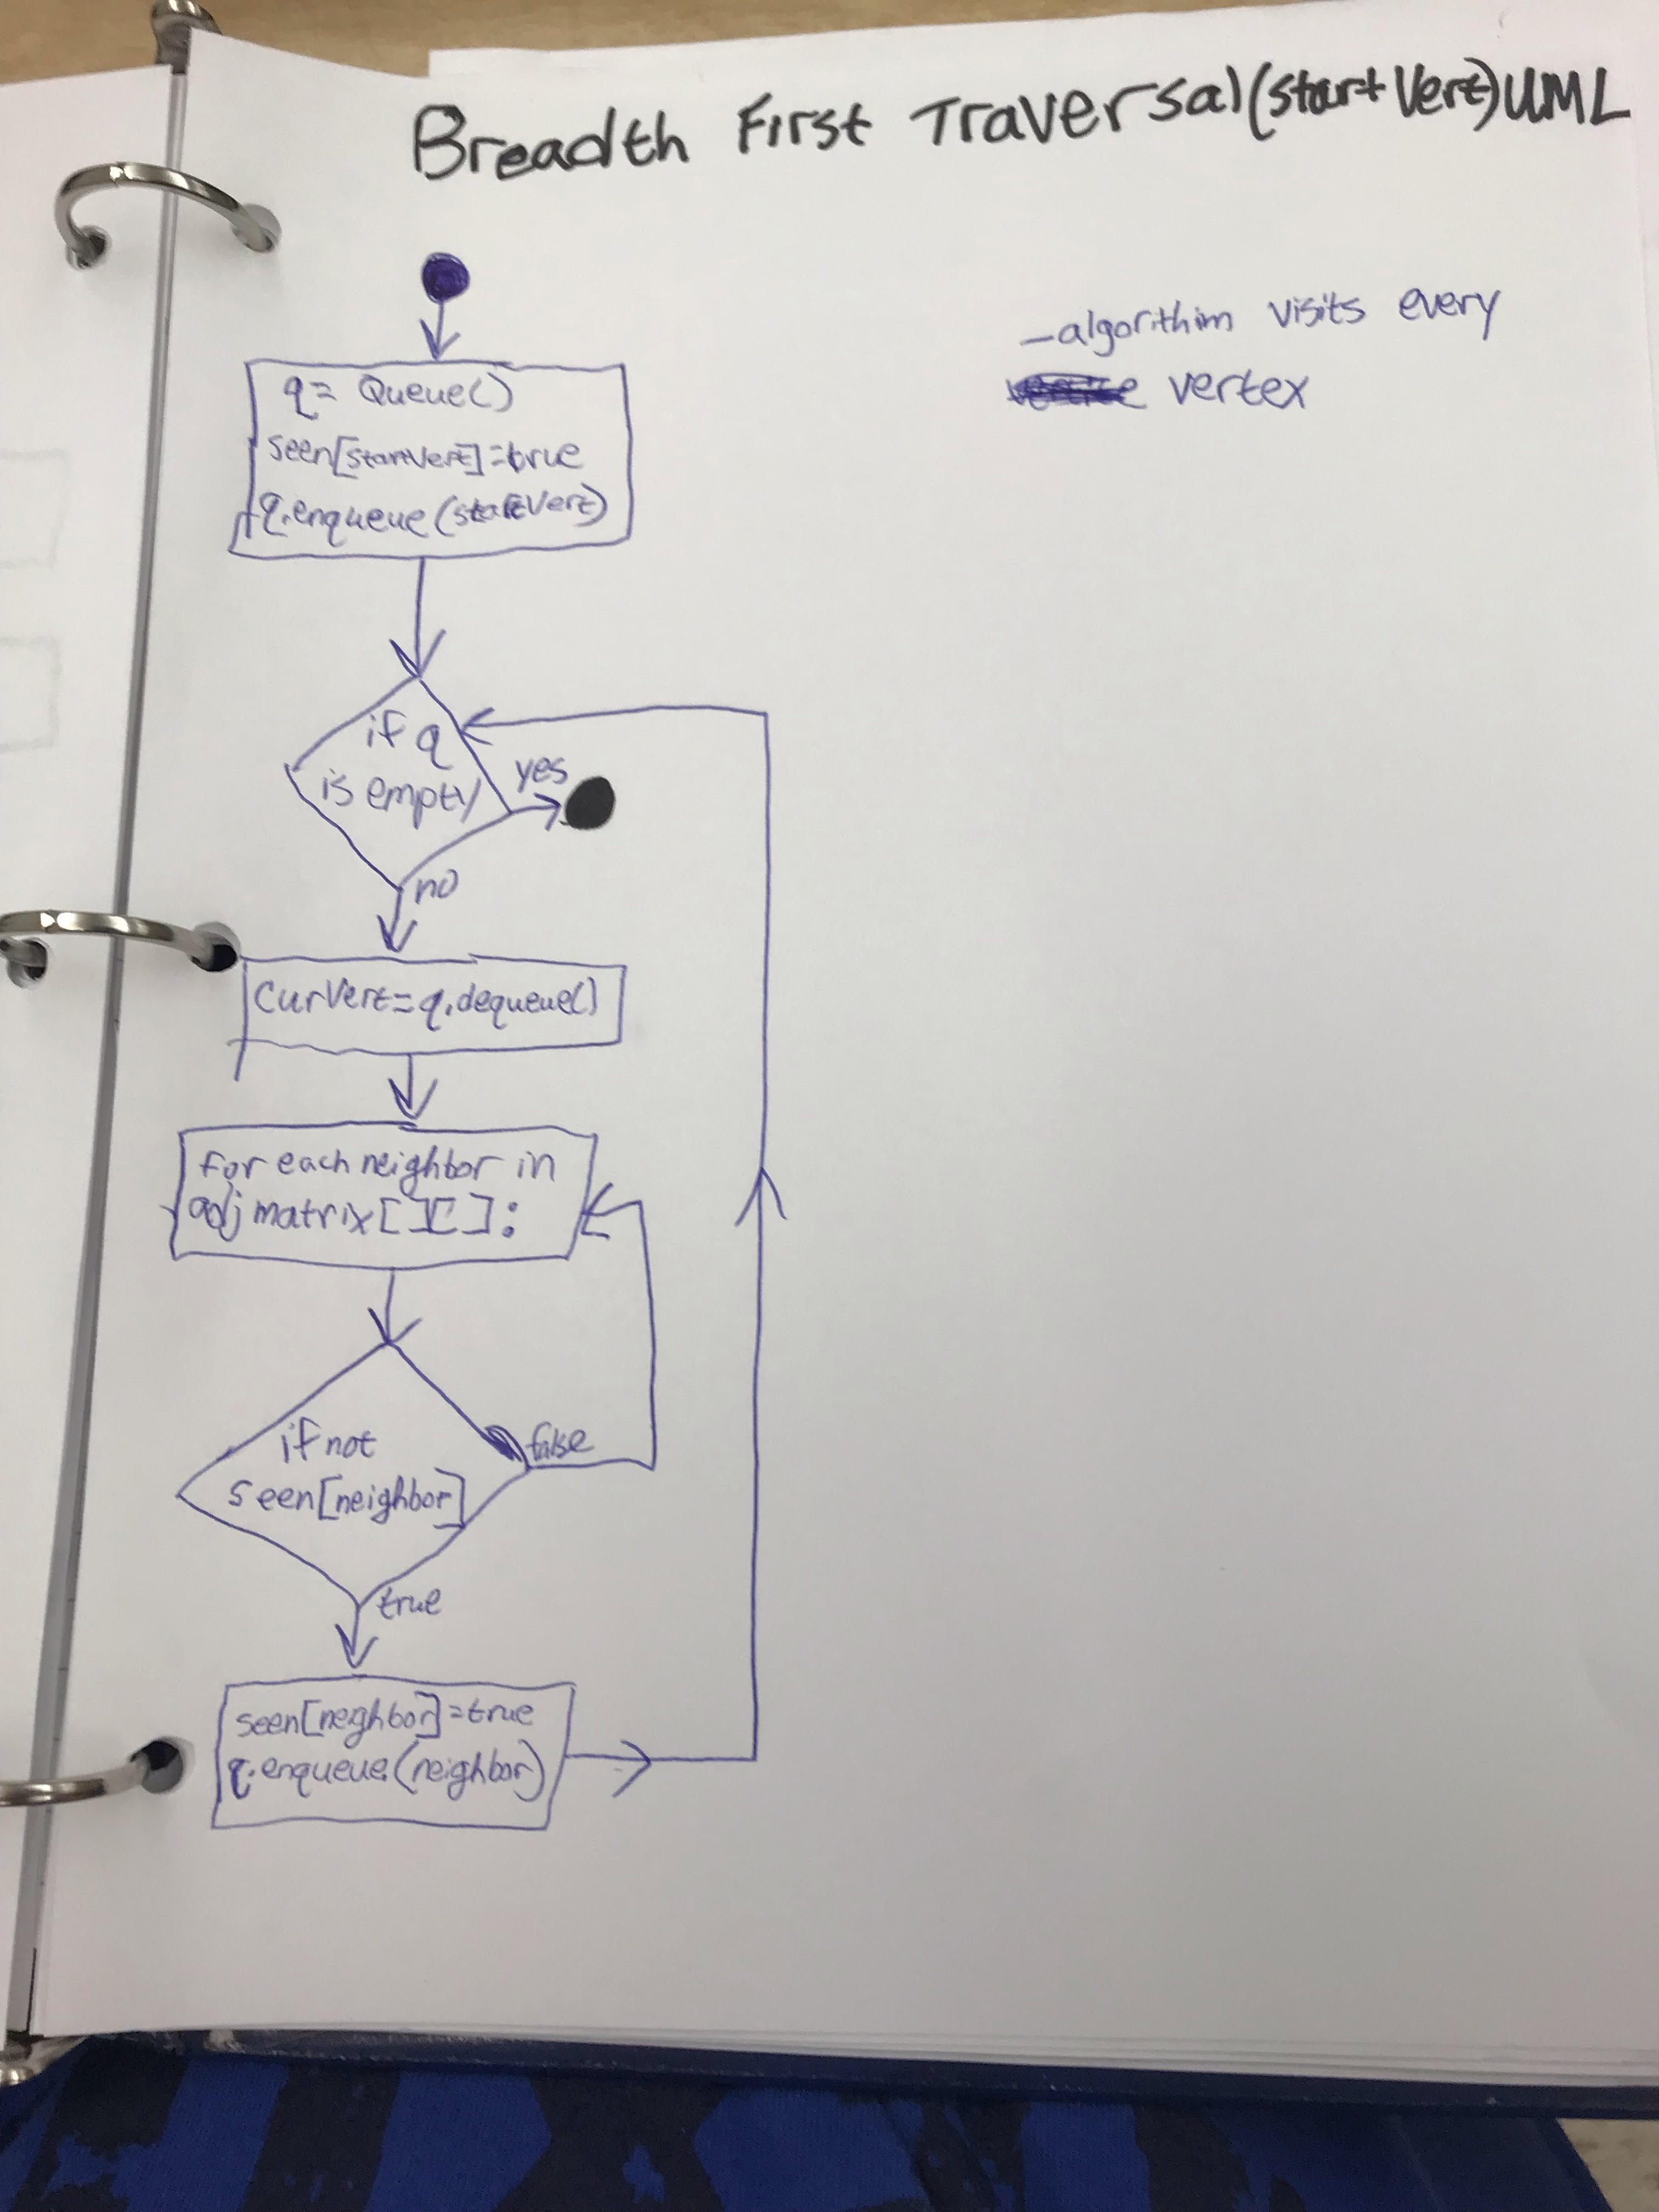 Breadth First Traversal(startVert)UML
-algorithim visits every
vertex
q= Queue()
seen[startVert]=true
q.enqueue(startVert)
if q
is empty
yes
no
CurVert=q.dequeue()
for each neighbor in
adjmatrix[][]:
if not
seen[neighbor]
false
true
seen[neighbor]=true
q.enqueue(neighbor)